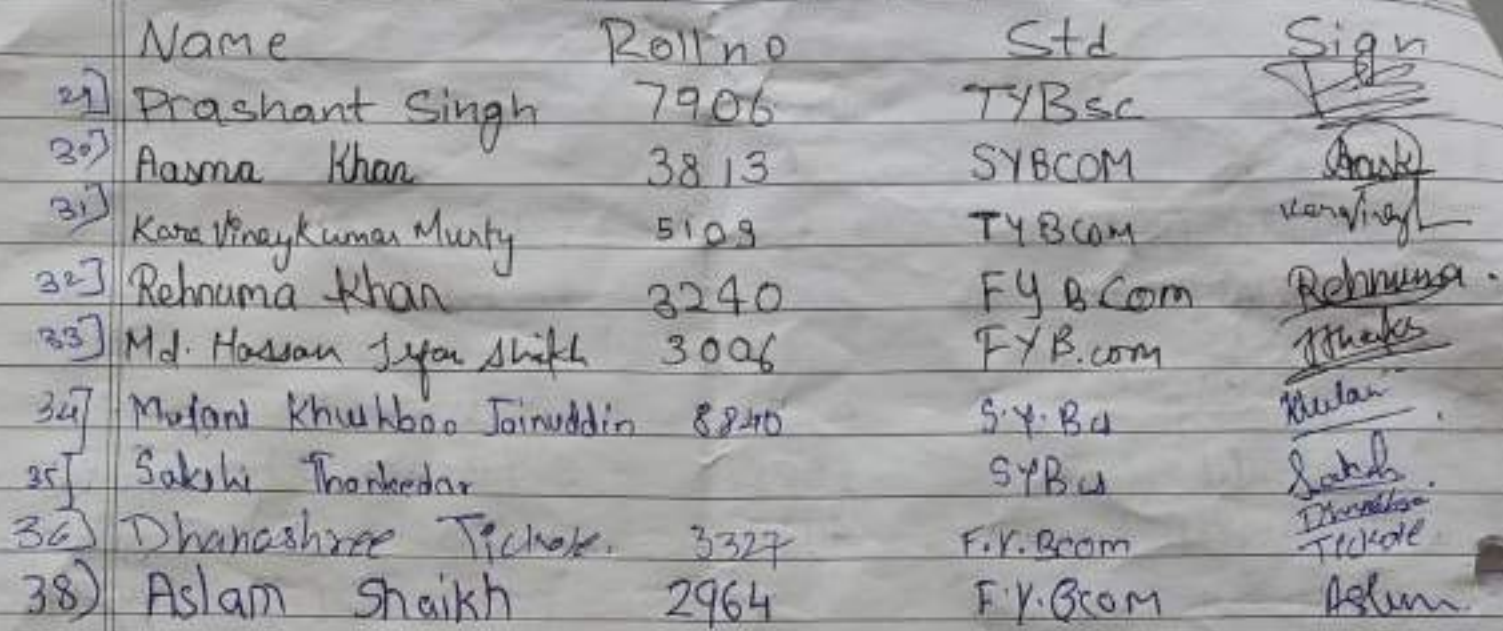 Name Roll no Std Sign
29] Prashant Singh 7906 TYBsc
30] Aasma Khan 3813 SYBCOM Aask
31] Kara Vinaykumar Murty 5109 TYBCOM KaraVinay
32] Rehnuma Khan 3240 FYBCom Rehnuma.
33] Md. Hassan Shikh 3006 FYB.com
34] Mulani Khushboo Jainuddin 8840 S.Y.Bcs
35] Sakshi Thankedar SYBcs Saksh
36) Dhanashree Tickole. 3327 F.Y.Bcom Tickole
38) Aslam Shaikh 2964 F.Y.Bcom Aslam